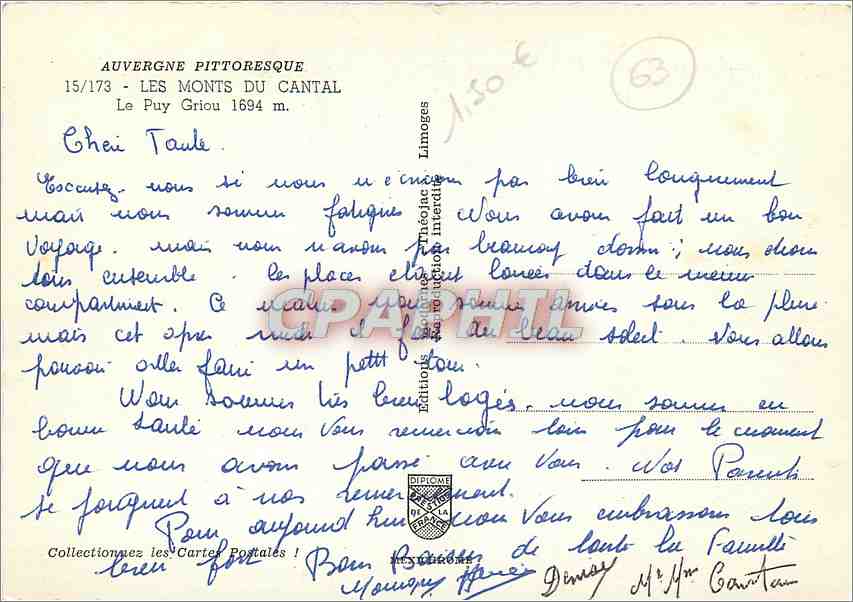 AUVERGNE PITTORESQUE
15/173 - LES MONTS DU CANTAL
Le Puy Griou 1694 m.
1,50 €
63
Cheri Tante.
Excusez-nous si nous n'écrivons pas bien longuement
mais nous sommes fatigués. Nous avons fait un bon
voyage. mais nous n'avons pas beaucoup dormi; nous étions
tous ensemble. les places étaient louées dans le même
compartiment. Ce matin nous sommes arrivés sous la pluie
mais cet après midi il fait du beau soleil. Nous allons
pouvoir aller faire un petit tour.
Nous sommes très bien logés. nous sommes en
bonne santé nous vous remercions bien pour le moment
que nous avons passé avec vous. Nos Parents
se joignent à nos remerciement.
Pour aujourd'hui nous vous embrassons tous
bien fort Bons Baisers de toute la Famille
Mr Mme
Editions Modernes Théojac Limoges
Reproduction interdite
CPAPHIL
DIPLOME
PRESTIGE
DE LA
FRANCE
Collectionnez les Cartes Postales !
MEXICHROME